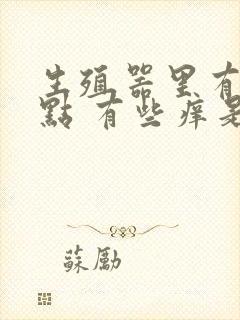 生殖器里有
點 有些痒是
蘇勵